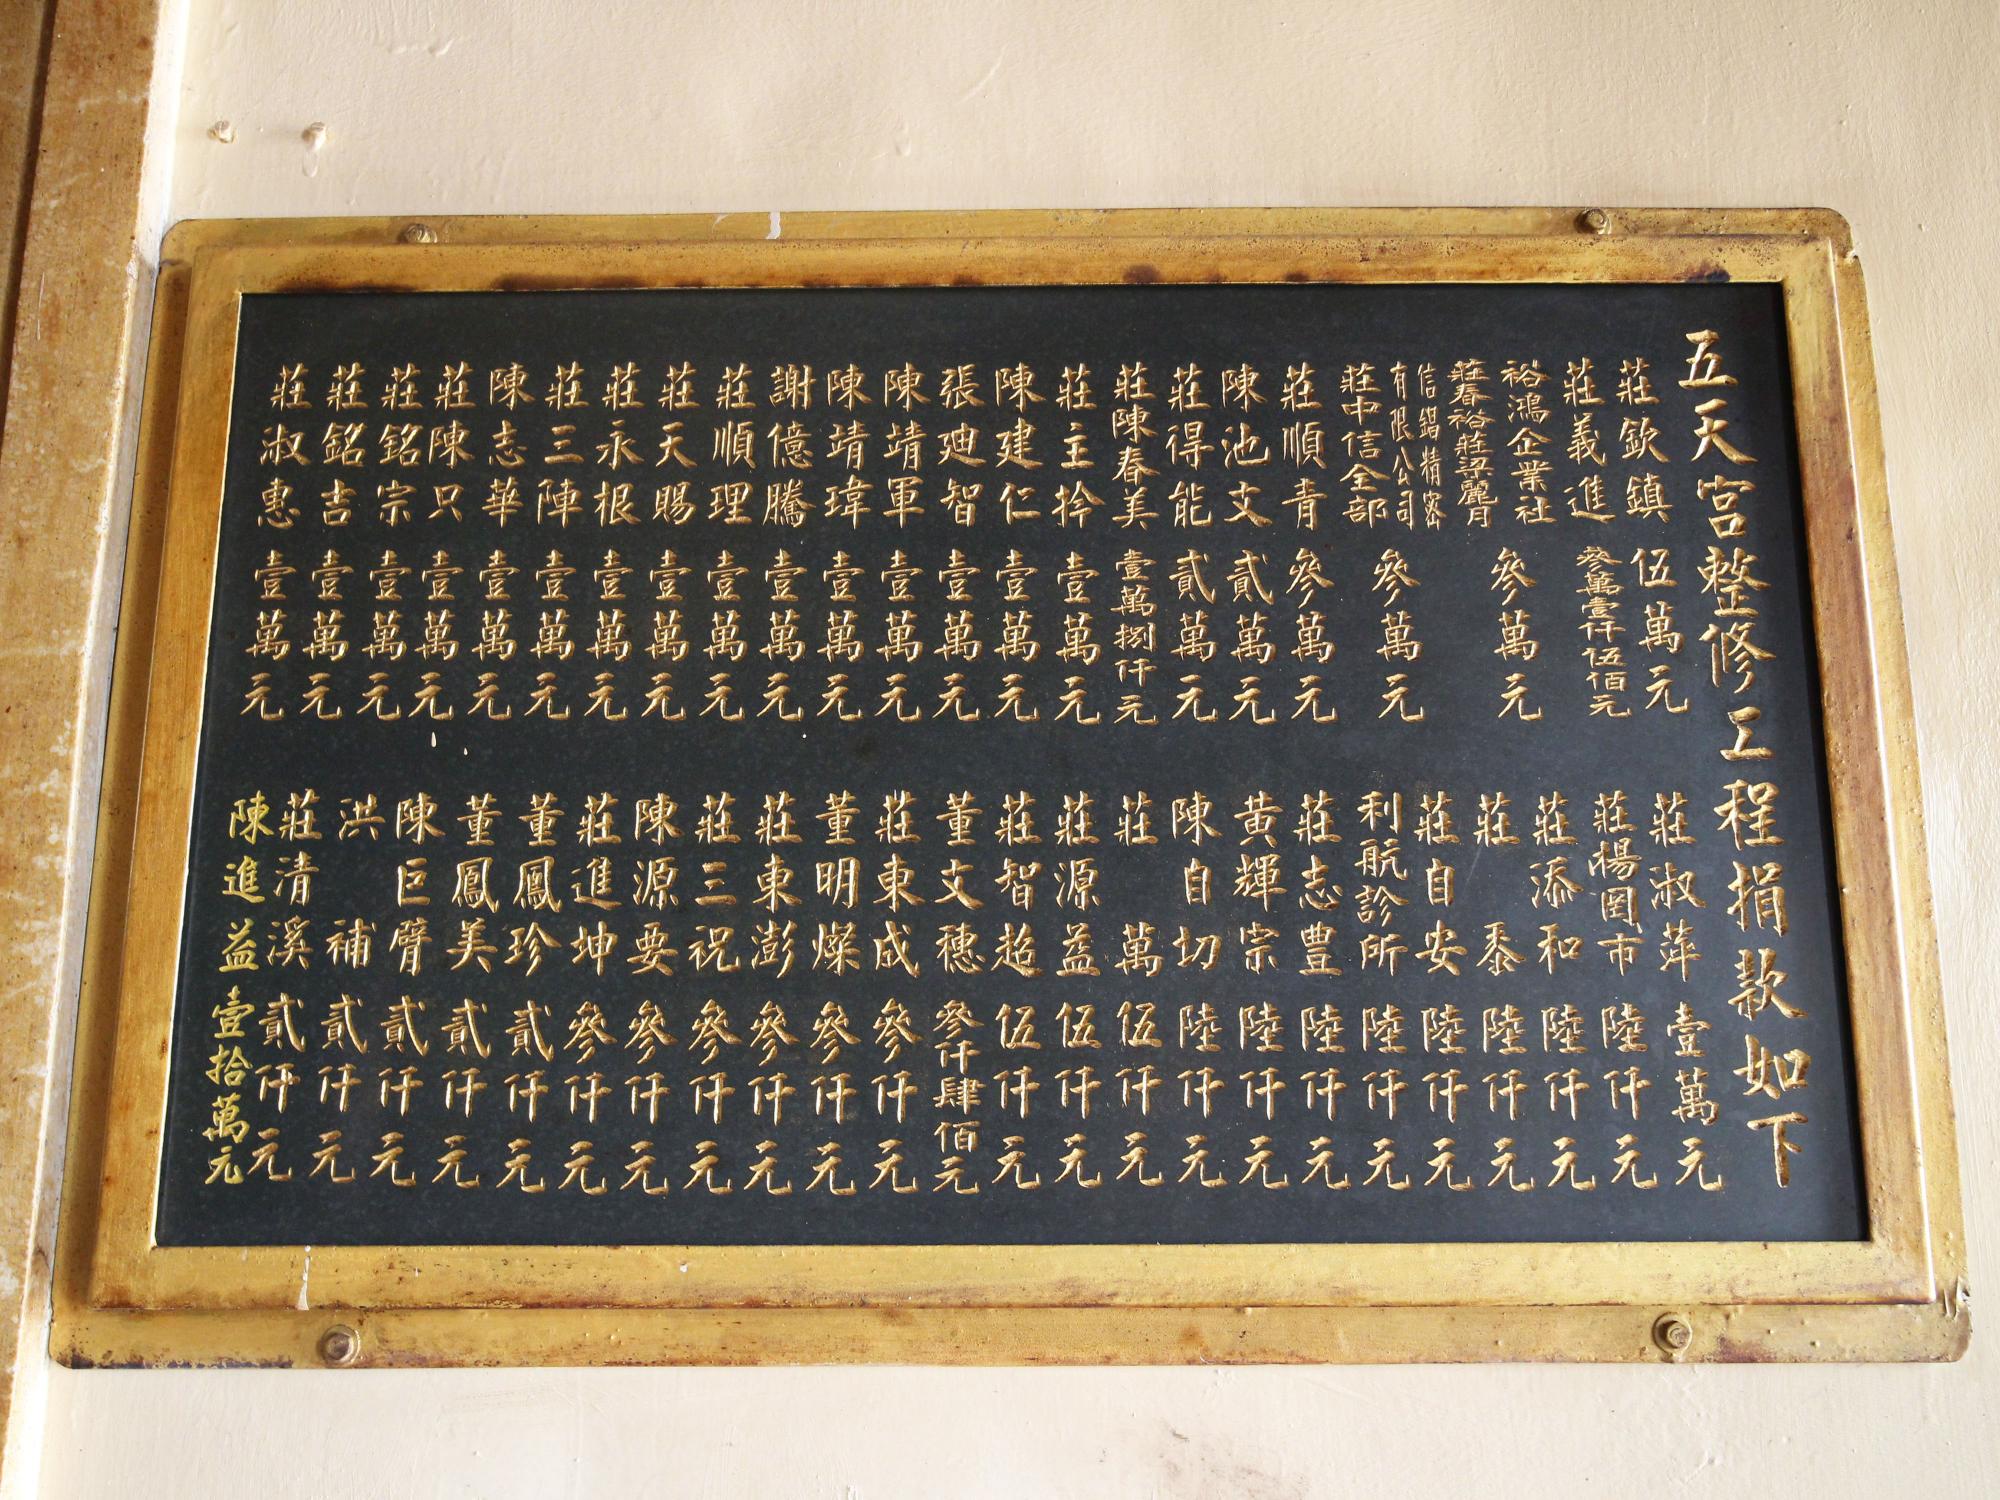 五天宮整修工程捐款如下
莊欽鎮 伍萬元
莊義進 參萬壹仟伍佰元
裕鴻企業社
莊春裕莊梁麗月 參萬元
信錩精密
有限公司
莊中信全部 參萬元
莊順青 參萬元
陳池文 貳萬元
莊得能 貳萬元
莊陳春美 壹萬捌仟元
莊主拎 壹萬元
陳建仁 壹萬元
張迪智 壹萬元
陳靖軍 壹萬元
陳靖瑋 壹萬元
謝億騰 壹萬元
莊順理 壹萬元
莊天賜 壹萬元
莊永根 壹萬元
莊三陣 壹萬元
陳志華 壹萬元
莊陳只 壹萬元
莊銘宗 壹萬元
莊銘吉 壹萬元
莊淑惠 壹萬元
莊淑萍 壹萬元
莊楊罔市 陸仟元
莊添和 陸仟元
莊黍 陸仟元
莊自安 陸仟元
利航診所 陸仟元
莊志豊 陸仟元
黃輝宗 陸仟元
陳自切 陸仟元
莊萬 伍仟元
莊源益 伍仟元
莊智超 伍仟元
董文穗 參仟肆佰元
莊東成 參仟元
董明燦 參仟元
莊東澎 參仟元
莊三祝 參仟元
陳源要 參仟元
莊進坤 參仟元
董鳳珍 貳仟元
董鳳美 貳仟元
陳巨臂 貳仟元
洪補 貳仟元
莊清溪 貳仟元
陳進益 壹拾萬元